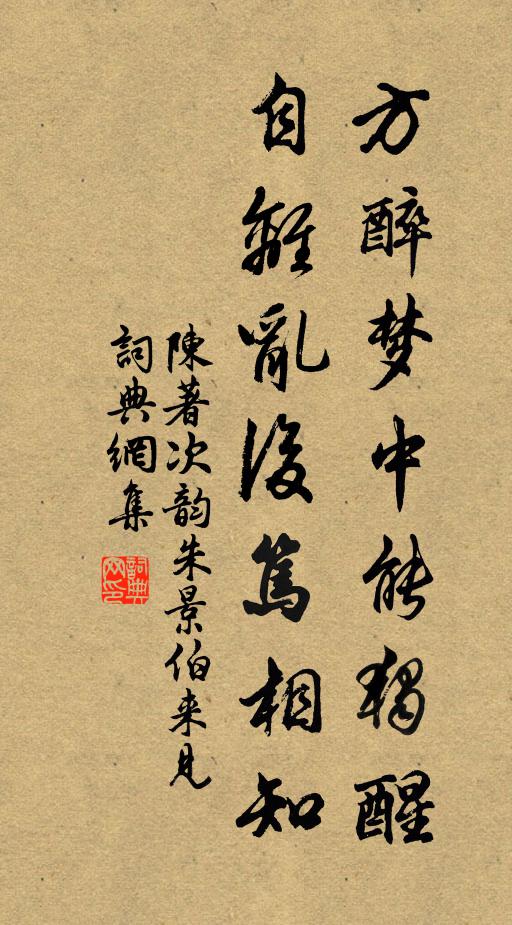 方醉梦中能独醒
自離亂後篤相知
陳著次韵朱景伯来見
詞典網集
詞典
网印